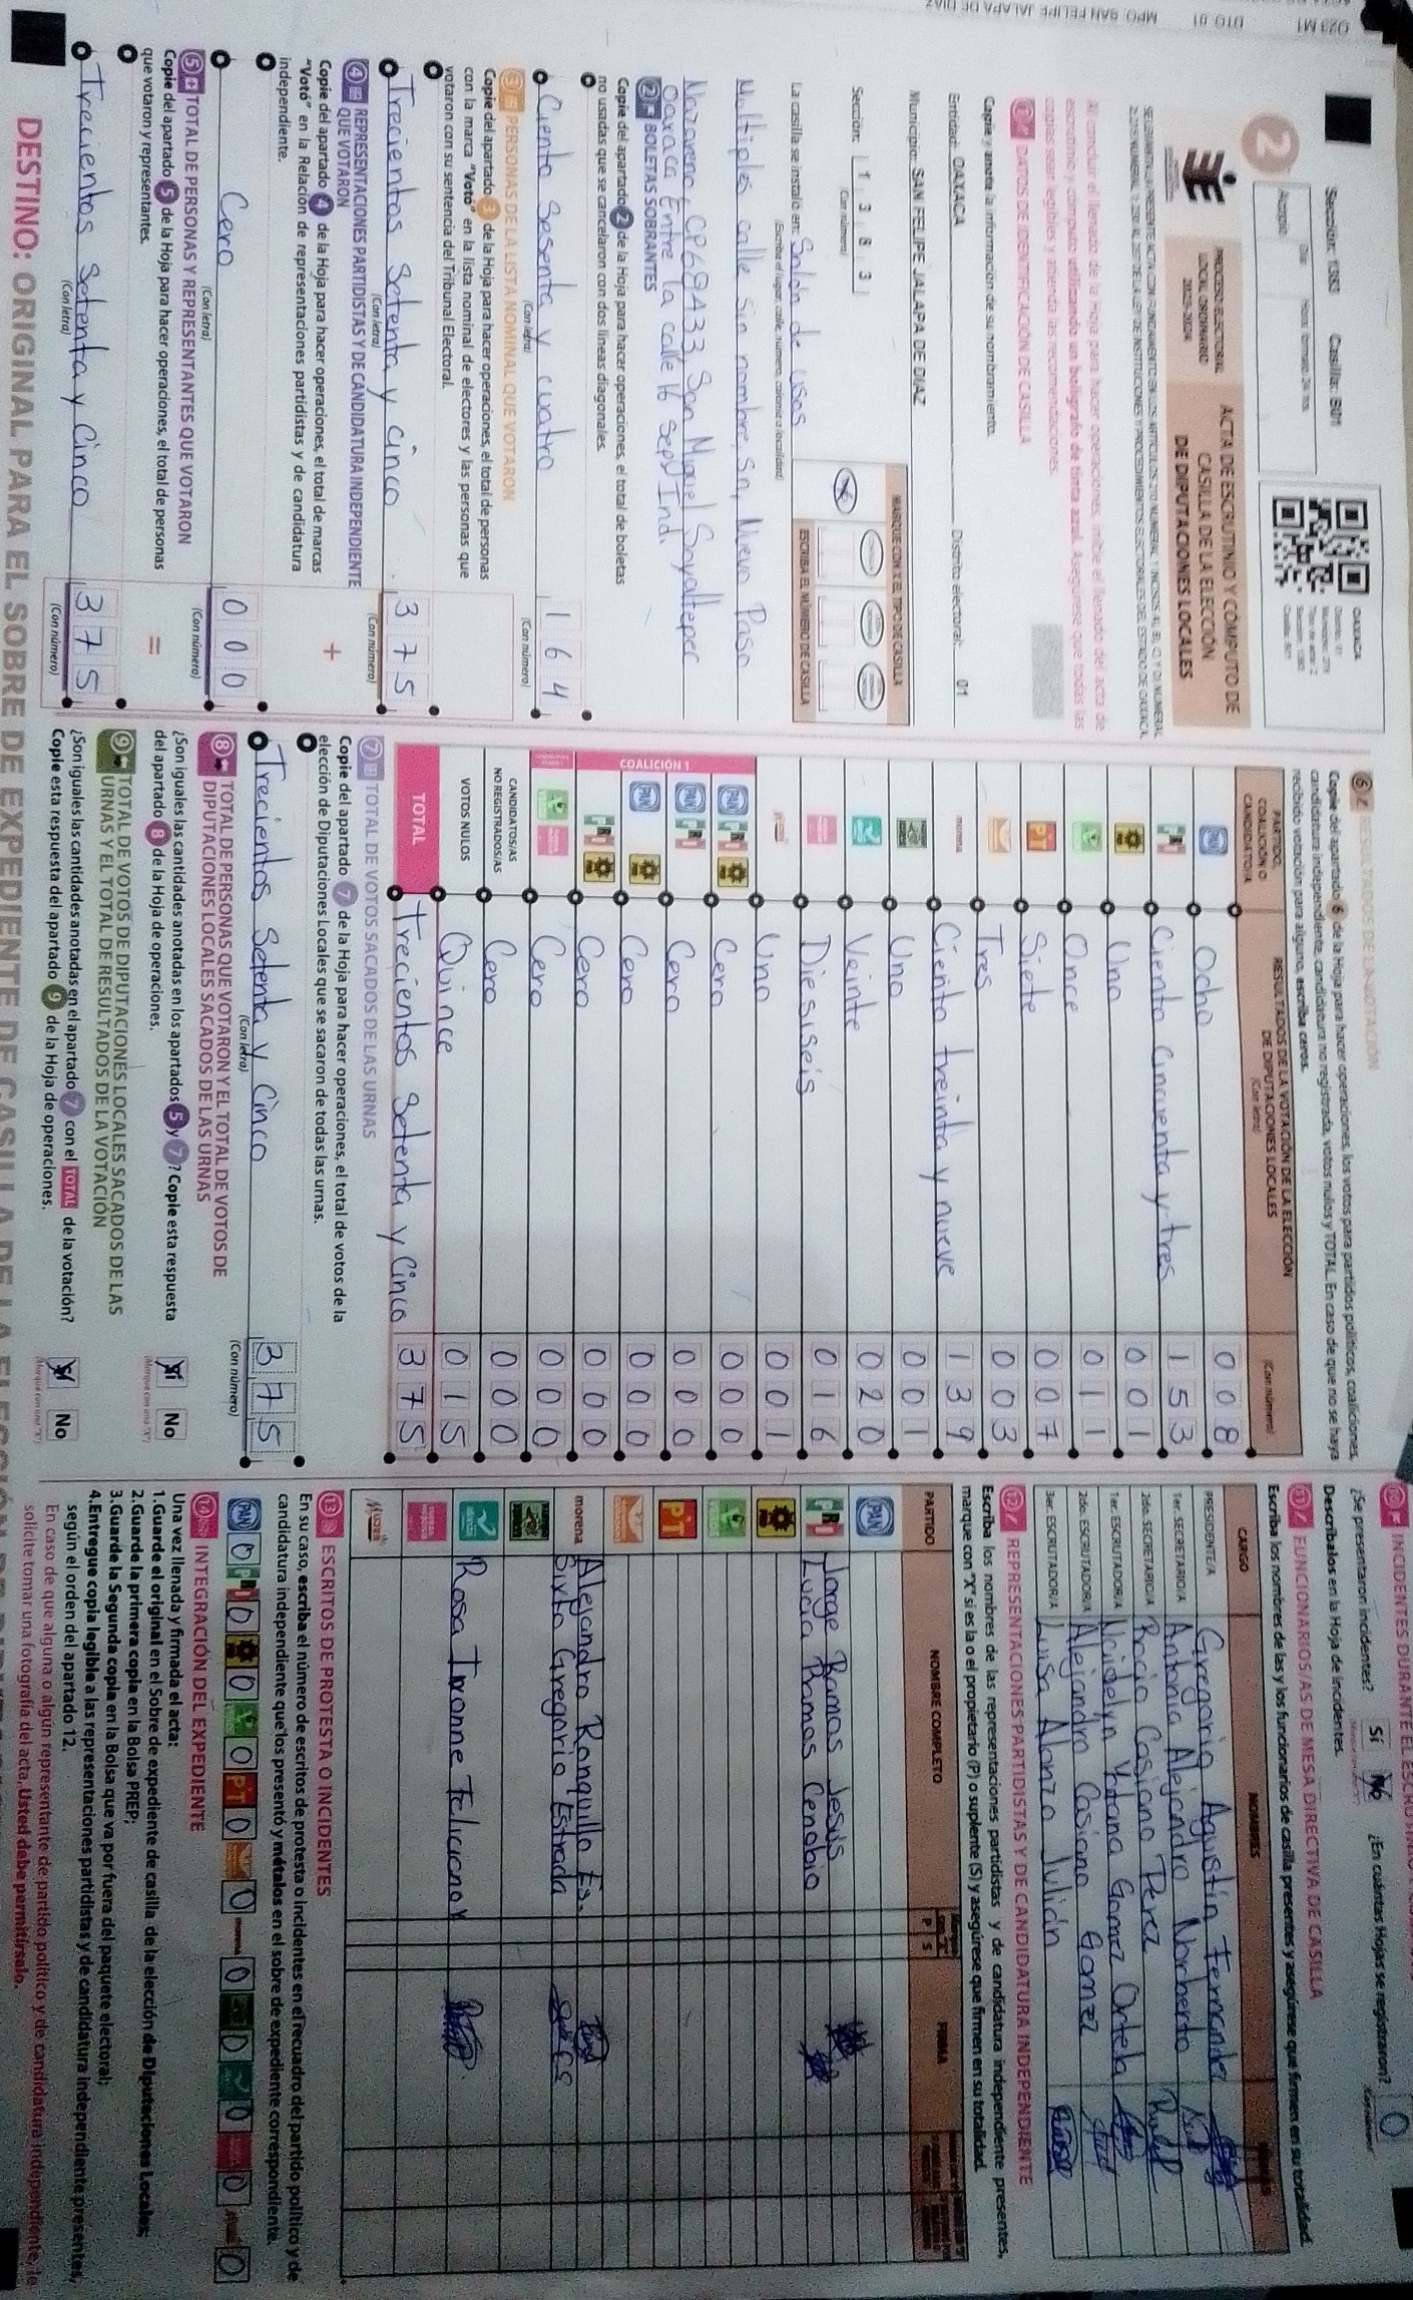 Sección: 1383 Casilla: B01
OAXACA
2
Acopio
Día:
Hora: formato 24 hrs.
PROCESO ELECTORAL
LOCAL ORDINARIO
2023-2024
ACTA DE ESCRUTINIO Y CÓMPUTO DE
CASILLA DE LA ELECCIÓN
DE DIPUTACIONES LOCALES
Al concluir el llenado de la Hoja para hacer operaciones, inicie el llenado del acta de
escrutinio y cómputo utilizando un bolígrafo de tinta azul. Asegúrese que todas las
copias sean legibles y atienda las recomendaciones.
1 DATOS DE IDENTIFICACIÓN DE CASILLA
Copie y anote la información de su nombramiento.
Entidad: OAXACA Distrito electoral: 01
Municipio: SAN FELIPE JALAPA DE DÍAZ
Sección: 1 3 8 3
(Con número)
MARQUE CON X EL TIPO DE CASILLA
ESCRIBA EL NÚMERO DE CASILLA
La casilla se instaló en: Salón de usos
(Escriba el lugar, calle, número, colonia o localidad)
Multiples calle sin nombre, Sn, Nuevo Paso
Nazareno, CP68433 San Miguel Soyaltepec
Oaxaca Entre la calle 16 sept Ind.
2 BOLETAS SOBRANTES
Copie del apartado 2 de la Hoja para hacer operaciones, el total de boletas
no usadas que se cancelaron con dos líneas diagonales.
Ciento sesenta y cuatro 1 6 4
(Con letra) (Con número)
3 PERSONAS DE LA LISTA NOMINAL QUE VOTARON
Copie del apartado 3 de la Hoja para hacer operaciones, el total de personas
con la marca "Votó" en la lista nominal de electores y las personas que
votaron con su sentencia del Tribunal Electoral.
Trecientos setenta y cinco 3 7 5
(Con letra) (Con número)
4 REPRESENTACIONES PARTIDISTAS Y DE CANDIDATURA INDEPENDIENTE
QUE VOTARON
Copie del apartado 4 de la Hoja para hacer operaciones, el total de marcas
"Votó" en la Relación de representaciones partidistas y de candidatura
independiente.
+
Cero 0 0 0
(Con letra) (Con número)
5 TOTAL DE PERSONAS Y REPRESENTANTES QUE VOTARON
Copie del apartado 5 de la Hoja para hacer operaciones, el total de personas
que votaron y representantes.
=
Trecientos setenta y cinco 3 7 5
(Con letra) (Con número)
DESTINO: ORIGINAL PARA EL SOBRE DE EXPEDIENTE DE CASILLA DE LA ELECCIÓN
6 RESULTADOS DE LA VOTACIÓN
Copie del apartado 6 de la Hoja para hacer operaciones, los votos para partidos políticos, coaliciones,
candidatura independiente, candidatura no registrada, votos nulos y TOTAL. En caso de que no se haya
recibido votación para alguno, escriba ceros.
PARTIDO, COALICIÓN O CANDIDATO/A
RESULTADOS DE LA VOTACIÓN DE LA ELECCIÓN DE DIPUTACIONES LOCALES
(Con letra) (Con número)
PAN Ocho 0 0 8
PRI Ciento cincuenta y tres 1 5 3
Uno 0 0 1
Once 0 1 1
PT Siete 0 0 7
Tres 0 0 3
morena Ciento treinta y nueve 1 3 9
Uno 0 0 1
Veinte 0 2 0
Diesiseis 0 1 6
Uno 0 0 1
COALICIÓN 1
PAN PRI Cero 0 0 0
PAN PRI Cero 0 0 0
PAN Cero 0 0 0
PRI Cero 0 0 0
Cero 0 0 0
CANDIDATOS/AS NO REGISTRADOS/AS Cero 0 0 0
VOTOS NULOS Quince 0 1 5
TOTAL Trecientos setenta y cinco 3 7 5
7 TOTAL DE VOTOS SACADOS DE LAS URNAS
Copie del apartado 7 de la Hoja para hacer operaciones, el total de votos de la
elección de Diputaciones Locales que se sacaron de todas las urnas.
Trecientos setenta y cinco 3 7 5
(Con letra) (Con número)
8 TOTAL DE PERSONAS QUE VOTARON Y EL TOTAL DE VOTOS DE
DIPUTACIONES LOCALES SACADOS DE LAS URNAS
¿Son iguales las cantidades anotadas en los apartados 5 y 7? Copie esta respuesta
del apartado 8 de la Hoja de operaciones.
Sí No
9 TOTAL DE VOTOS DE DIPUTACIONES LOCALES SACADOS DE LAS
URNAS Y EL TOTAL DE RESULTADOS DE LA VOTACIÓN
¿Son iguales las cantidades anotadas en el apartado 7 con el TOTAL de la votación?
Copie esta respuesta del apartado 9 de la Hoja de operaciones.
Sí No
10 INCIDENTES DURANTE EL
¿Se presentaron incidentes? Sí No ¿En cuántas Hojas se registraron? 0
Descríbalos en la Hoja de incidentes.
11 FUNCIONARIOS/AS DE MESA DIRECTIVA DE CASILLA
Escriba los nombres de las y los funcionarios de casilla presentes y asegúrese que firmen en su totalidad.
CARGO NOMBRES
PRESIDENTE/A Gregoria Agustín Fernandez
1er. SECRETARIO/A Antonia Alejandro Norberto
2do. SECRETARIO/A Rocio Casiano Perez
1er. ESCRUTADOR/A Naidelyn Yotana Gomez Ortela
2do. ESCRUTADOR/A Alejandra Casiano Gomez
3er. ESCRUTADOR/A Luisa Alonzo Julian
12 REPRESENTACIONES PARTIDISTAS Y DE CANDIDATURA INDEPENDIENTE
Escriba los nombres de las representaciones partidistas y de candidatura independiente presentes,
marque con "X" si es la o el propietario (P) o suplente (S) y asegúrese que firmen en su totalidad.
PARTIDO NOMBRE COMPLETO P S FIRMA
PAN
PRI Jorge Ramos Jesús
Lucia Ramos Cenobio
PT
morena Alejandro Ronquillo Es.
Sixto Gregorio Estrada
Rosa Ivonne Feliciano
MUJER
13 ESCRITOS DE PROTESTA O INCIDENTES
En su caso, escriba el número de escritos de protesta o incidentes en el recuadro del partido político y de
candidatura independiente que los presentó y métalos en el sobre de expediente correspondiente.
PAN 0 PRI 0 0 0 PT 0 0 0 0 0 0 0
14 INTEGRACIÓN DEL EXPEDIENTE
Una vez llenada y firmada el acta:
1. Guarde el original en el Sobre de expediente de casilla de la elección de Diputaciones Locales;
2. Guarde la primera copia en la Bolsa PREP;
3. Guarde la Segunda copia en la Bolsa que va por fuera del paquete electoral;
4. Entregue copia legible a las representaciones partidistas y de candidatura independiente presentes,
según el orden del apartado 12.
En caso de que alguna o algún representante de partido político y de candidatura independiente, le
solicite tomar una fotografía del acta, Usted debe permitírselo.
DTO 01 MPO. SAN FELIPE JALAPA DE DIAZ